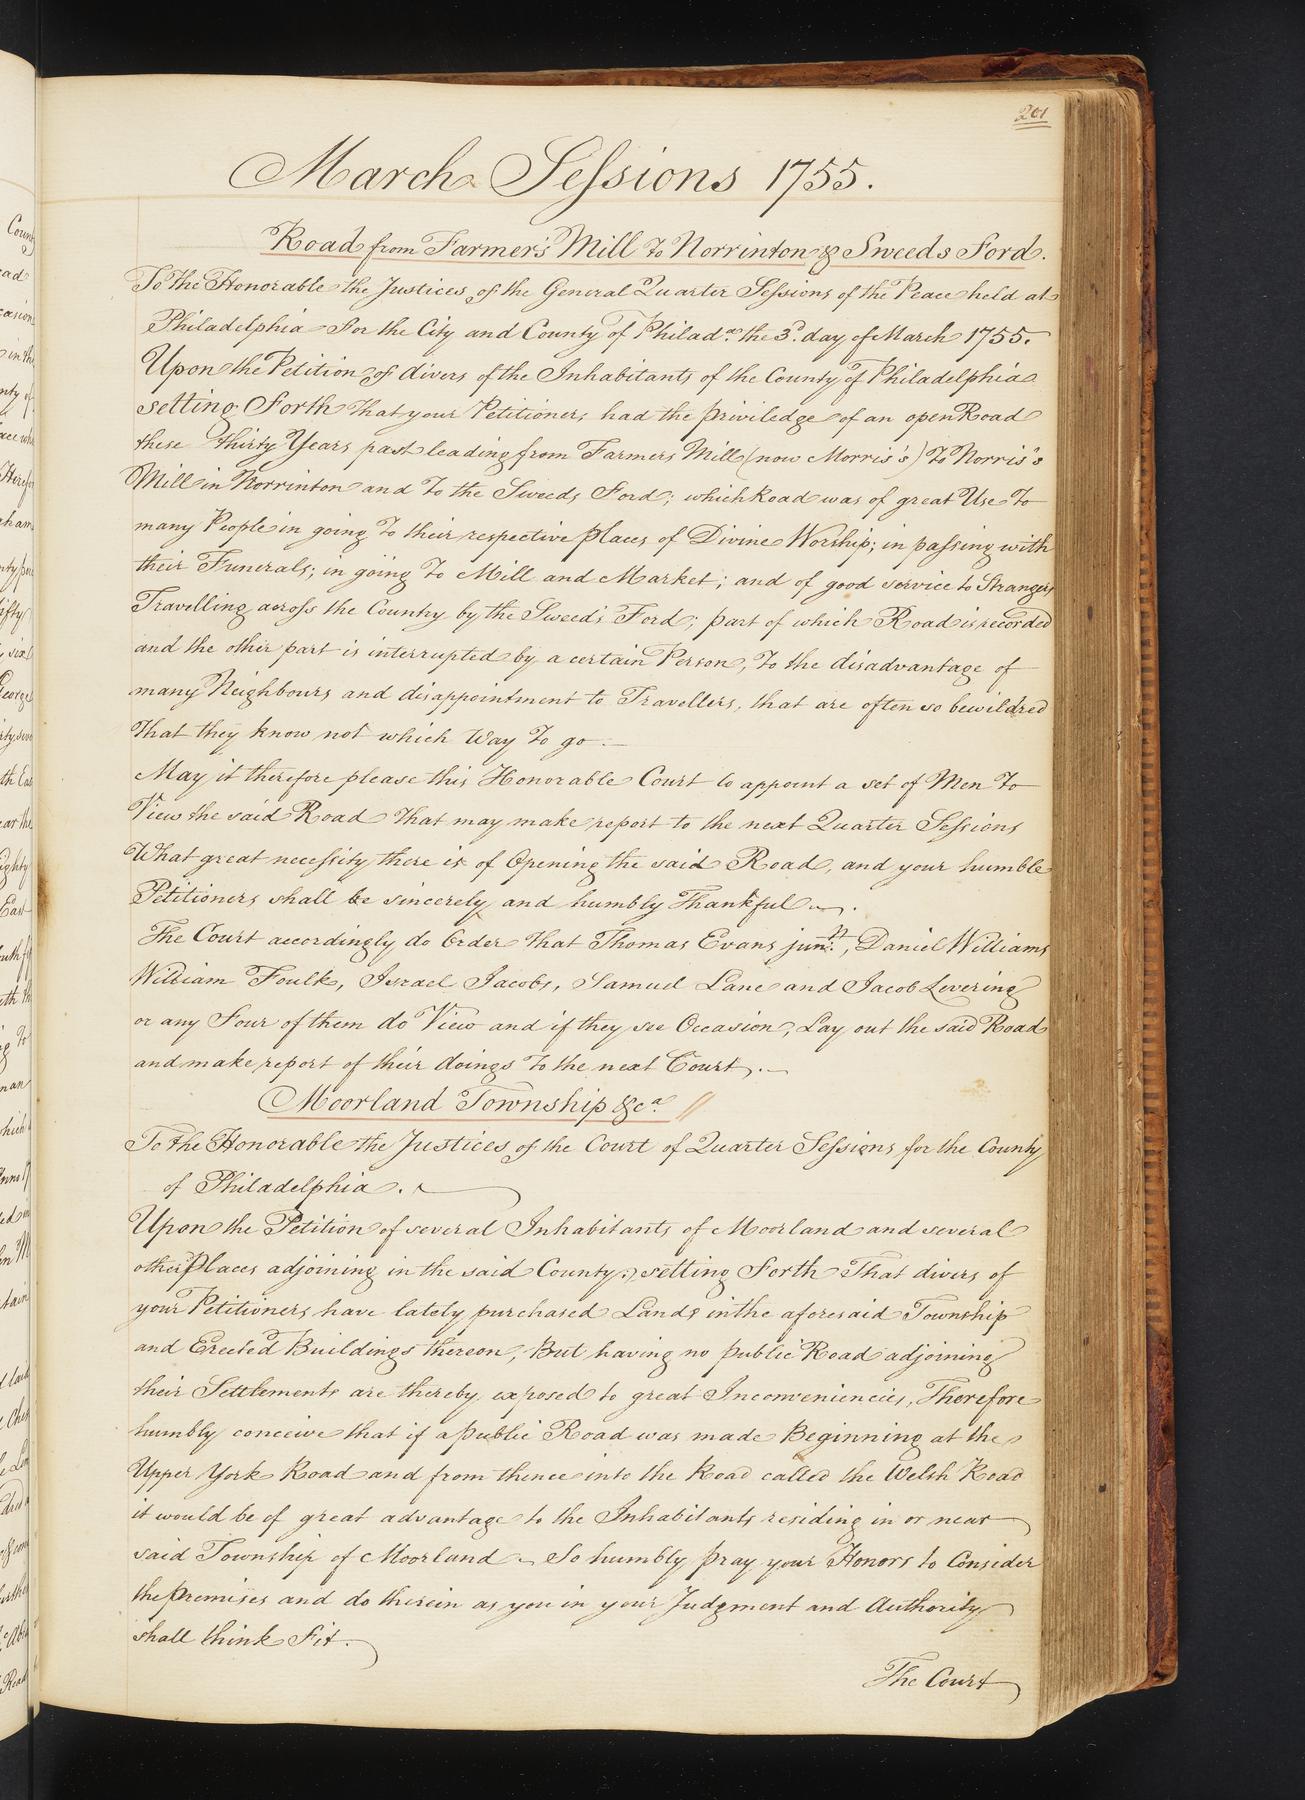 201
March Sessions 1755.
Road from Farmer's Mill To Norrinton & Sweeds Ford.
To the Honorable the Justices of the General Quarter Sessions of the Peace held at
Philadelphia for the City and County of Philad.a the 3.d day of March 1755.
Upon the Petition of divers of the Inhabitants of the County of Philadelphia
setting Forth That your Petitioners had the priviledge of an open Road
these Thirty Years past leading from Farmers Mill (now Morris's) To Norris's
Mill in Norrinton and To the Sweeds Ford; which Road was of great Use To
many People in going To their respective places of Divine Worship; in passing with
their Funerals; in going To Mill and Market; and of good service to Strangers
Travelling across the Country by the Sweeds Ford; part of which Road is recorded
and the other part is interrupted by a certain Person, To the disadvantage of
many Neighbours and disappointment to Travellers, that are often so bewildred
That they know not which Way To go.
May it therefore please this Honorable Court to appoint a set of Men To
View the said Road That may make report to the next Quarter Sessions
What great necessity there is of Opening the said Road, and your humble
Petitioners shall be sincerely and humbly Thankful.
The Court accordingly do Order That Thomas Evans jun.r, Daniel Williams
William Foulk, Israel Jacobs, Samuel Lane and Jacob Levering
or any Four of them do View and if they see Occasion, Lay out the said Road
and make report of their doings To the next Court.
Moorland Township &c.a
To the Honorable the Justices of the Court of Quarter Sessions for the County
of Philadelphia.
Upon the Petition of several Inhabitants of Moorland and several
other Places adjoining in the said County; setting Forth That divers of
your Petitioners have lately purchased Lands in the aforesaid Township
and Erected Buildings thereon, But having no public Road adjoining
their Settlements are thereby exposed to great Inconveniencies, Therefore
humbly conceive that if a public Road was made Beginning at the
Upper York Road and from thence into the Road called the Welsh Road
it would be of great advantage to the Inhabitants residing in or near
said Township of Moorland So humbly pray your Honors to Consider
the premises and do therein as you in your Judgment and Authority
shall think Fit.
The Court